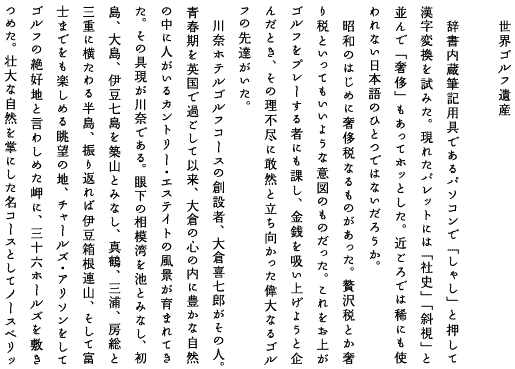 世界ゴルフ遺産
辞書内蔵筆記用具であるパソコンで「しゃし」と押して
漢字変換を試みた。現れたパレットには「社史」「斜視」と
並んで「奢侈」もあってホッとした。近ごろでは稀にも使
われない日本語のひとつではないだろうか。
昭和のはじめに奢侈税なるものがあった。贅沢税とか奢
り税といってもいいような意図のものだった。これをお上が
ゴルフをプレーする者にも課し、金銭を吸い上げようと企
んだとき、その理不尽に敢然と立ち向かった偉大なるゴル
フの先達がいた。
川奈ホテルゴルフコースの創設者、大倉喜七郎がその人。
青春期を英国で過ごして以来、大倉の心の内に豊かな自然
の中に人がいるカントリー・エステイトの風景が育まれてき
た。その具現が川奈である。眼下の相模湾を池とみなし、初
島、大島、伊豆七島を築山とみなし、真鶴、三浦、房総と
三重に横たわる半島、振り返れば伊豆箱根連山、そして富
士までをも楽しめる眺望の地、チャールズ・アリソンをして
ゴルフの絶好地と言わしめた岬に、三十六ホールズを敷き
つめた。壮大な自然を掌にした名コースとしてノースベリッ